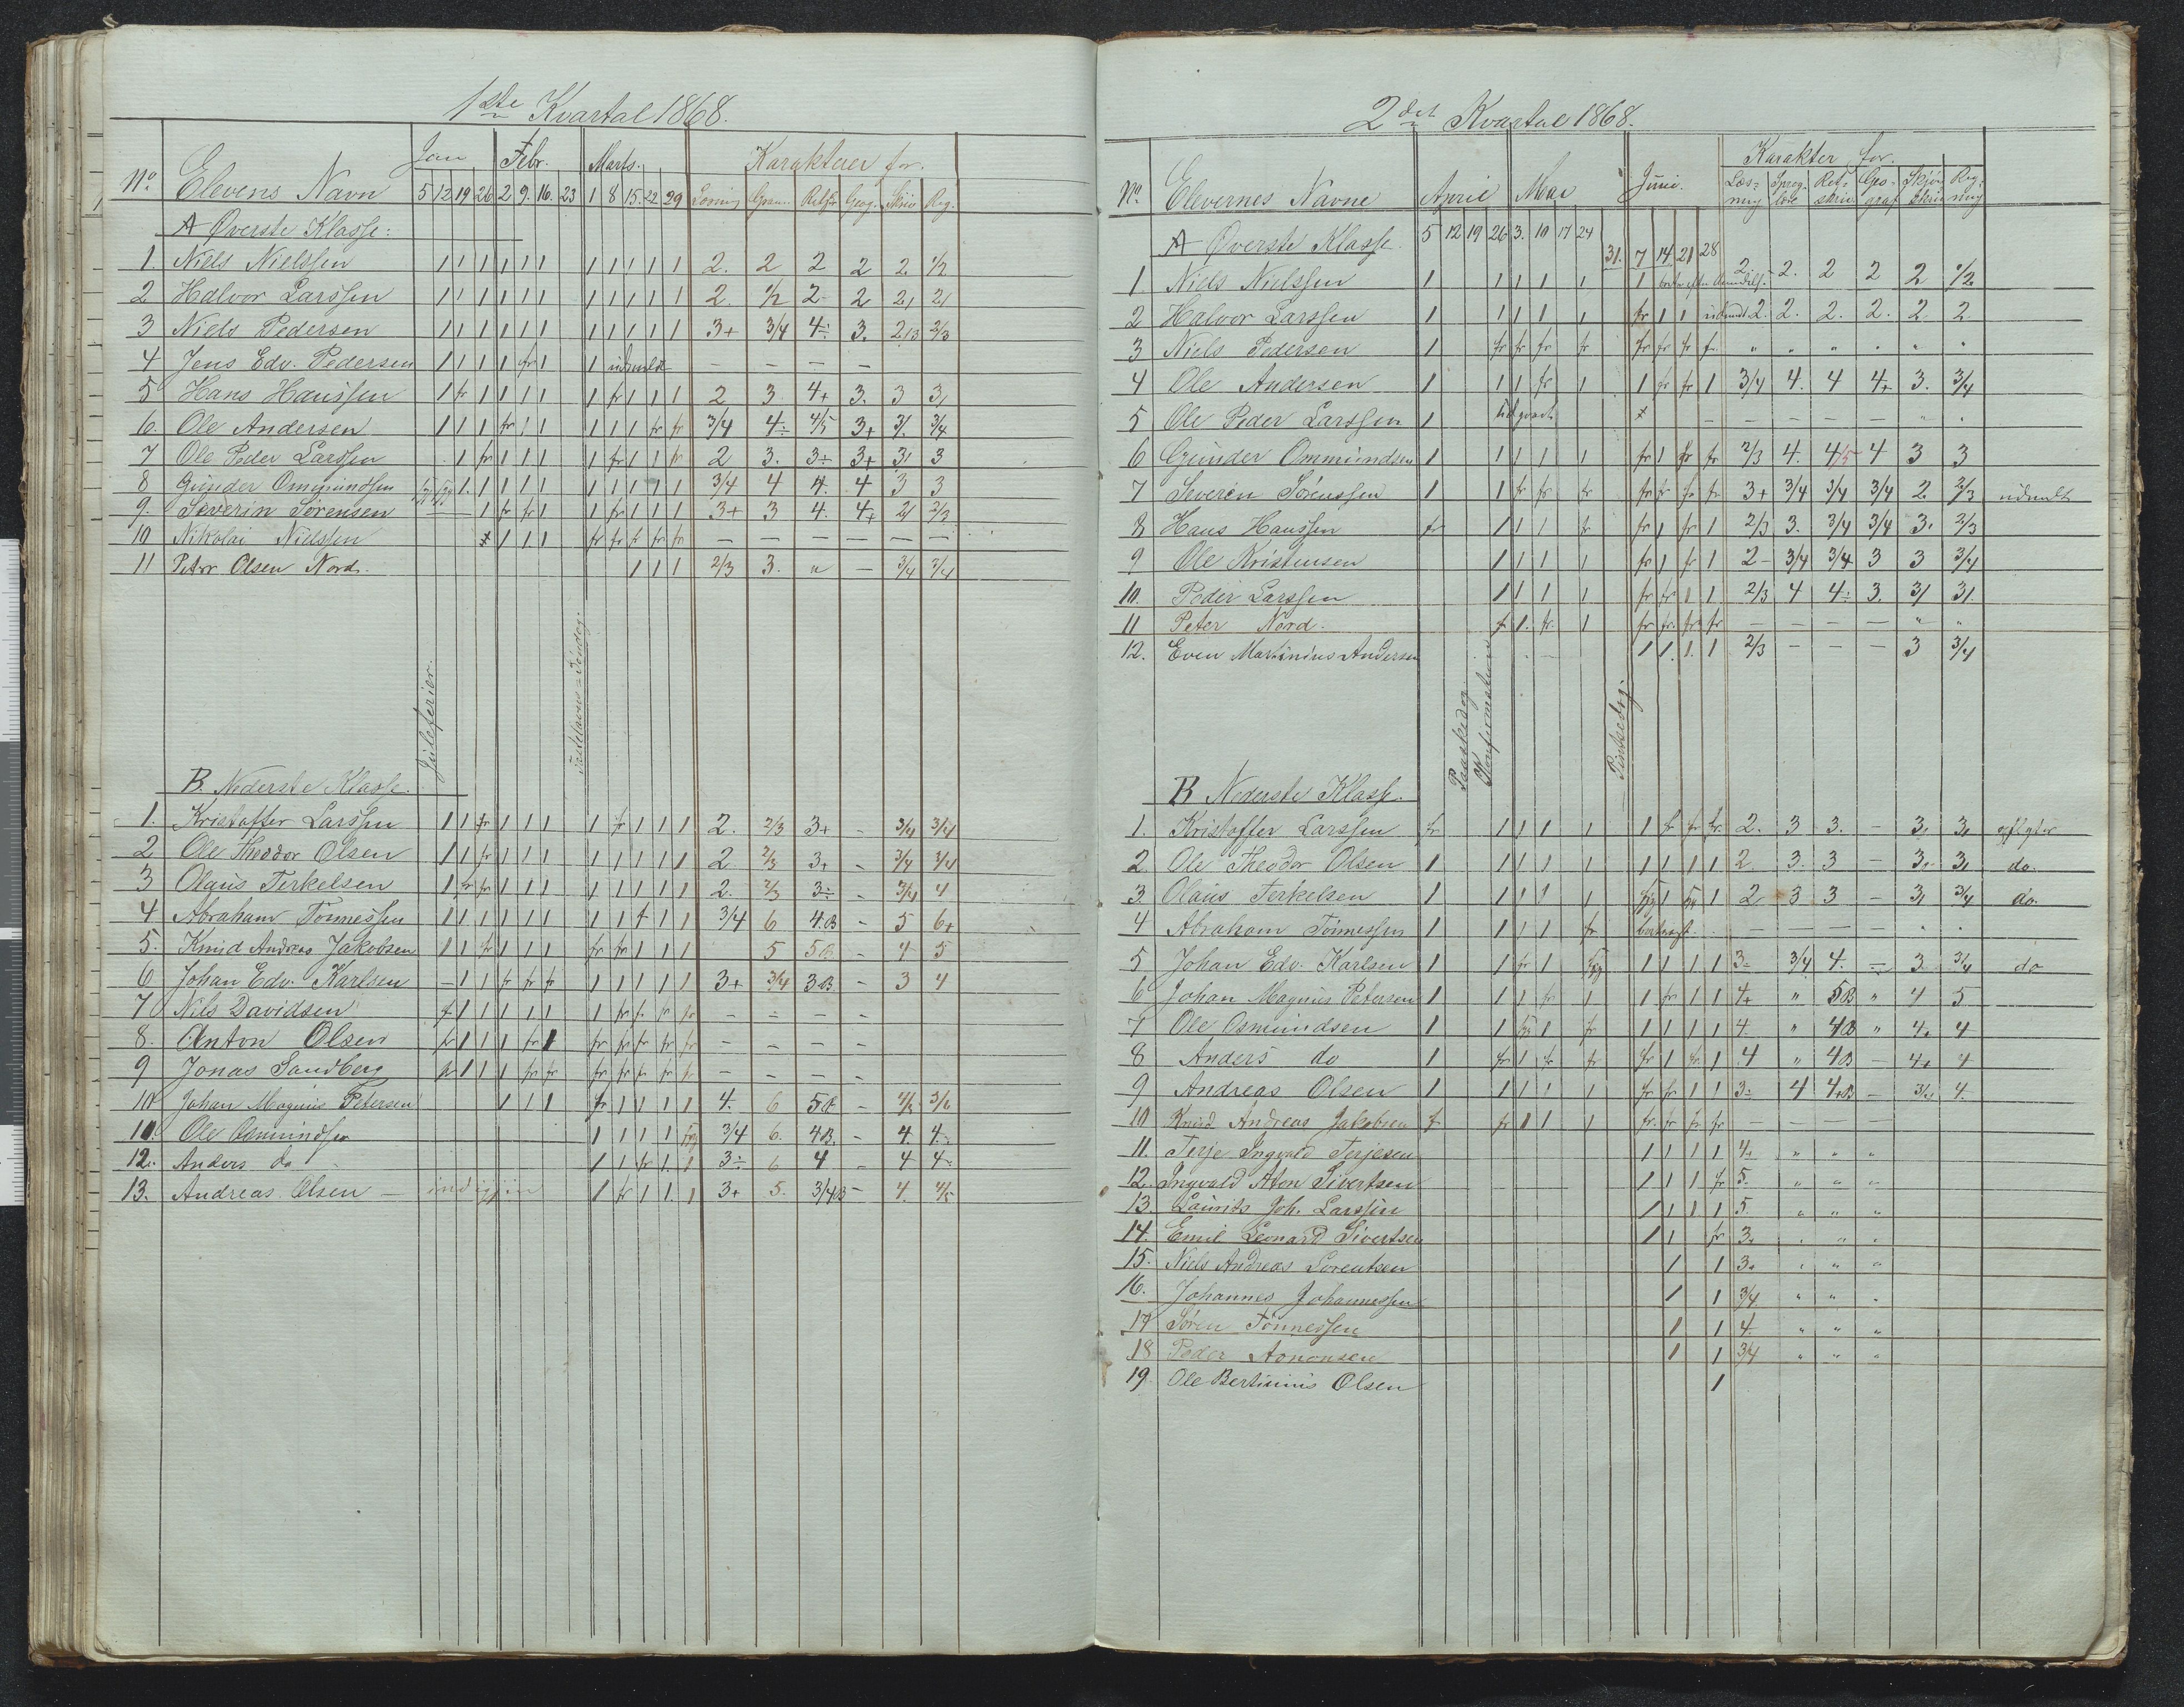 1ste Kvartal 1868.
No. Elevens Navn Jan Febr. Marts. Karakterer for.
5 12 19 26 2 9. 16. 23 1 8 15. 22 29 Læsning Gram. Retskr. Geog. Skriv Reg.
A Øverste Klasse:
1. Niels Nielssen 1 1 1 1 1 1 1 1 1 1 1 2. 2 2 2 2. 1/2
2 Halvor Larssen 1 1 1 1 1 1 1 1 1 1 1 2. 1/2 2- 2 2, 2,
3 Niels Pedersen 1 1 1 1 1 1 1 1 1 1 1 3+ 3/4 4÷ 3. 2/3 2/3
4 Jens Edv. Pedersen 1 1 1 1 fr 1 1 udmeldt — — — —
5 Hans Hanssen 1 fr 1 1 1 1 1 fr 1 1 1 2 3 4+ 3. 3 3,
6. Ole Andersen 1 1 1 fr 1 1 1 1 1 fr fr 3/4 4÷ 4/5 3+ 3/. 3/4
7 Ole Peder Larssen 1 fr 1 1 1 1 fr 1 1 fr 2 3. 3÷ 3+ 3, 3
8 Gunder Ommundsen syg syg 1. 1 1 1 1 1 1 1 1 3/4 4 4. 4 3 3
9. Severin Sørensen — 1 fr fr 1 1 fr 1 1 1 3+ 3 4. 4+ 2, 2/3
10 Nikolai Nielssen 1 1 1 fr fr fr fr fr — — — — — —
11 Peter Olsen Nord. 1 1 1 2/3 3. " — 3/4 3/4
Juleferier.
Fastelavns-Søndag.
B. Nederste Klasse.
1. Kristoffer Larssen 1 1 fr 1 1 1 1 fr 1 1 1 2. 2/3 3+ - 3/4 3/4
2 Ole Theodor Olsen 1 1 fr 1 1 1 1 1 1 1 1 2 2/3 3+ - 3/4 3/4
3 Olaus Terkelsen 1 fr fr 1 1 1 1 1 1 1 1 2. 2/3 3÷ - 3/4 4
4 Abraham Tönnessen 1 1 1 1 1 1 1 1 f 1 1 3/4 6 4.B - 5 6+
5. Knud Andreas Jakobsen 1 1 fr 1 1 1 fr fr 1 1 1 5 5B - 4 5
6 Johan Edv. Karlsen - 1 1 fr fr fr 1 1 1 1 1 3+ 3/4 3B - 3 4
7 Nils Davidsen f 1 1 1 1 1 1 fr fr fr fr - - - -
8. Anton Olsen fr 1 1 1 fr 1 fr fr fr fr fr - - - -
9 Jonas Sandberg fr 1 1 1 fr fr fr fr fr fr fr - - - -
10 Johan Magnus Petersen 1 1 1 fr 1 1 1 1 4. 6 5B - 4/5 5/6
11. Ole Osmundsen 1 1 1 1 syg 3/4 6. 4B. - 4. 4.
12. Anders do 1 1 fr 1. 1 3÷ 6 4 - 4 4÷
13. Andreas Olsen — 1 fr 1 1. 1 3+ 5. 3/4B - 4. 4/5
2det Kvartal 1868.
No. Elevernes Navne April Mai Juni. Karakter for.
Læsning Sproglære Retskriv Geograf Skjønskriv Regning
A Øverste Klasse. 5 12 19 26 3. 10 17 24 31. 7 14 21 28
1 Niels Nielssen 1 1 1 1 1 1 2 2. 2 2 2 1/2
2 Halvor Larssen 1 1 1 1 1 fr 1 1 udmeldt 2. 2. 2. 2. 2. 2
3 Niels Pedersen 1 fr fr fr fr fr fr fr fr " " " " " "
4 Ole Andersen 1 1 1 fr 1 1 fr fr 1 3/4 4. 4 4+ 3. 3/4
5 Ole Peder Larssen 1 — — — — " "
6 Gunder Ommundsen 1 1 1 1 1 fr 1 fr fr 2/3 4. 4/5 4 3 3
7 Severin Sørenssen 1 1 fr fr fr fr fr fr fr 3+ 3/4 3/4 3/4 2. 2/3 udmeldt
8 Hans Hanssen fr 1 1 1 fr fr 1 fr 1 2/3 3. 3/4 3/4 3. 2/3
9 Ole Kristensen 1 1 1 1 fr 1 fr 1 2- 3/4 3/4 3 3 3/4
10. Peder Larssen 1 1 1 1 fr fr 1 1 2/3 4 4÷ 3. 3, 3,
11 Peter Nord. f 1. fr. 1 fr fr. fr fr — — — — " "
12. Even Martinius Andersen 1 1. 1. 1 2/3 - - - 3 3/4
Paaskedag
Konfirmation
Pintsedag.
B Nederste Klasse.
1. Kristoffer Larssen fr 1 1 1 1 1 fr fr fr. 2. 3 3. — 3, 3,
2. Ole Theodor Olsen 1 1 1 1 1 1 1 1 1 2. 3. 3 — 3, 3, do.
3. Olaus Terkelsen 1 1 1 1 1 syg 1 syg 1 2 3 3 — 3, 3/4 do.
4 Abraham Tönnessen 1 1 1 1 fr — — — —
5 Johan Edv. Karlsen 1 1 fr 1 syg 1 1 1 1 3÷ 3/4 4. — 3. 3/4 do
6 Johan Magnus Petersen 1 1 1 fr 1 1 fr 1 1 4+ " 5B " 4 5
7 Ole Osmundsen 1 1 syg 1 fr 1 1 1 1 4. " 4B " 4+ 4
8 Anders do 1 fr 1 fr fr fr 1 fr 1 4 " 4B — 4+ 4
9 Andreas Olsen 1 1 1 1 1 fr fr 1 1 3÷ 4 4+B — 3/4 4.
10 Knud Andreas Jakobsen f fr 1 1 1 fr. fr fr fr — — — —
11. Terje Ingvald Terjesen 1 1 1 1 4. " " "
12. Ingvald Aton Sivertsen 1 1 1 fr 5. " " "
13. Laurits Joh. Larssen 1 1 1 1 5. " " "
14. Emil Leonard Sivertsen 1 1 fr 3. " " "
15. Niels Andreas Lorentsen 1 1 3. " " "
16. Johannes Johannessen 1 1 3/4 " " "
17 Sören Tönnessen 1 1 4. " " "
18 Peder Aononsen 1 1 3/4 " " "
19. Ole Bertinius Olsen 1